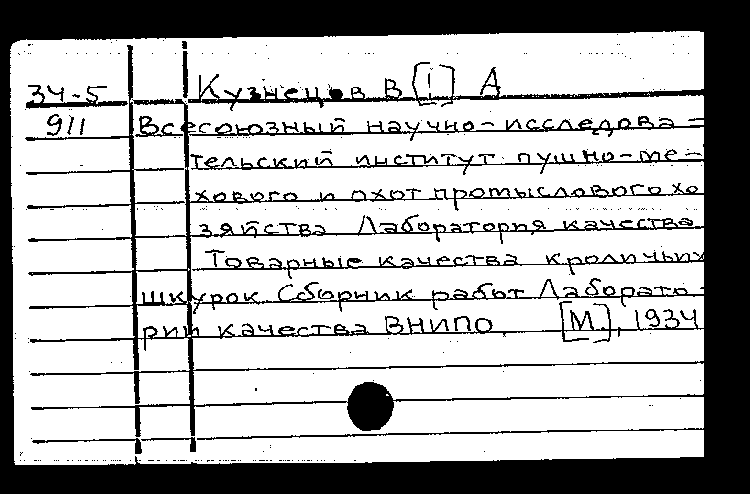 34-5 Кузнецов В [!] А
911 Всесоюзный научно-исследова=
тельский институт пушно-ме-
хового и охот промыслового хо
зяйства Лаборатория качества
Товарные качества кроличьих
шкурок Сборник работ Лаборато-
рии качества ВНИПО. [М.], 1934